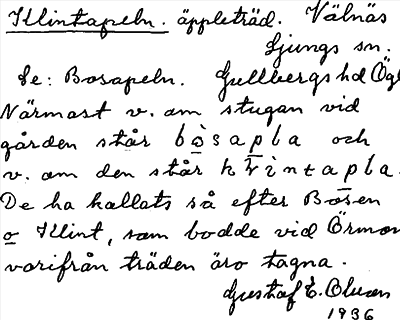 Klintapeln. äppleträd. Välnäs
Ljungs sn.
Se: Bosapeln. Gullbergs hd Ögl
Närmast v. om stugan vid
gården står bo̱̊sapla och
v. om den står klintapla.
De ha kallats så efter Bosen
o Klint, som bodde vid Örmon
varifrån träden äro tagna.
Gustaf E. Olsson
1936